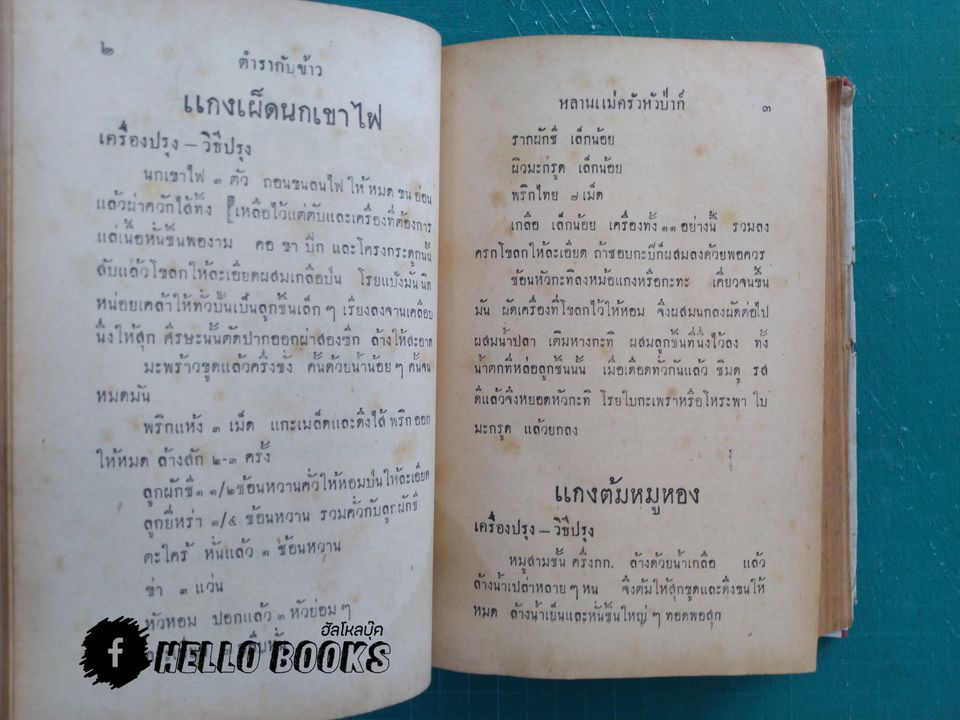 ๒
ตำรากับข้าว
แกงเผ็ดนกเขาไฟ
เครื่องปรุง – วิธีปรุง
นกเขาไฟ ๓ ตัว ถอนขนลนไฟ ให้หมด ขน อ่อน
แล้วผ่าควักไส้ทิ้ง เหลือไว้แต่ตับและเครื่องที่ต้องการ
แล่เนื้อหั่นชิ้นพองาม คอ ขา ปีก และโครงกระดูกนั้น
สับแล้วโขลกให้ละเอียดผสมเกลือป่น โรยแป้งมันนิด
หน่อยเคล้าให้ทั่วปั้นเป็นลูกชิ้นเล็กๆ เรียงลงจานเคลือบ
นึ่งให้สุก ศีรษะนั้นตัดปากออกผ่าสองซีก ล้างให้สะอาด
มะพร้าวขูดแล้วครึ่งชั่ง คั้นด้วยน้ำน้อยๆ คั้นจน
หมดมัน
พริกแห้ง ๓ เม็ด แกะเมล็ดและดึงไส้ พริก ออก
ให้หมด ล้างสัก ๒-๓ ครั้ง
ลูกผักชี ๑ ๑/๒ ช้อนหวานคั่วให้หอมป่นให้ละเอียด
ลูกยี่หร่า ๑/๔ ช้อนหวาน รวมคั่วกับลูกผักชี
ตะไคร้ หั่นแล้ว ๑ ช้อนหวาน
ข่า ๓ แว่น
หัวหอม ปอกแล้ว ๓ หัวย่อมๆ
ฮัลโหลบุ๊ค
f HELLO BOOKS
หลานแม่ครัวหัวป่าก์ ๓
รากผักชี เล็กน้อย
ผิวมะกรูด เล็กน้อย
พริกไทย ๗ เม็ด
เกลือ เล็กน้อย เครื่องทั้ง ๑๑ อย่างนี้ รวมลง
ครกโขลกให้ละเอียด ถ้าชอบกะปิก็ผสมลงด้วยพอควร
ช้อนหัวกะทิลงหม้อแกงหรือกะทะ เคี่ยวจนขึ้น
มัน ผัดเครื่องที่โขลกไว้ให้หอม จึงผสมนกลงผัดต่อไป
ผสมน้ำปลา เติมหางกะทิ ผสมลูกชิ้นที่นึ่งไว้ลง ทั้ง
น้ำตกที่หล่อลูกชิ้นนั้น เมื่อเดือดทั่วกันแล้ว ชิมดู รส
ดีแล้วจึงหยอดหัวกะทิ โรยใบกะเพราหรือโหระพา ใบ
มะกรูด แล้วยกลง
แกงต้มหมูหอง
เครื่องปรุง – วิธีปรุง
หมูสามชั้น ครึ่งกก. ล้างด้วยน้ำเกลือ แล้ว
ล้างน้ำเปล่าหลายๆ หน จึงต้มให้สุกขูดและดึงขนให้
หมด ล้างน้ำเย็นและหั่นชิ้นใหญ่ๆ ทอดพอสุก